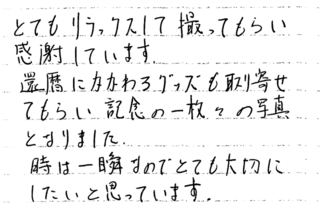 とてもリラックスして撮ってもらい
感謝しています.
還暦にかかわるグッズも取り寄せ
てもらい記念の一枚々の写真
となりました.
時は一瞬なのでとても大切に
したいと思っています.